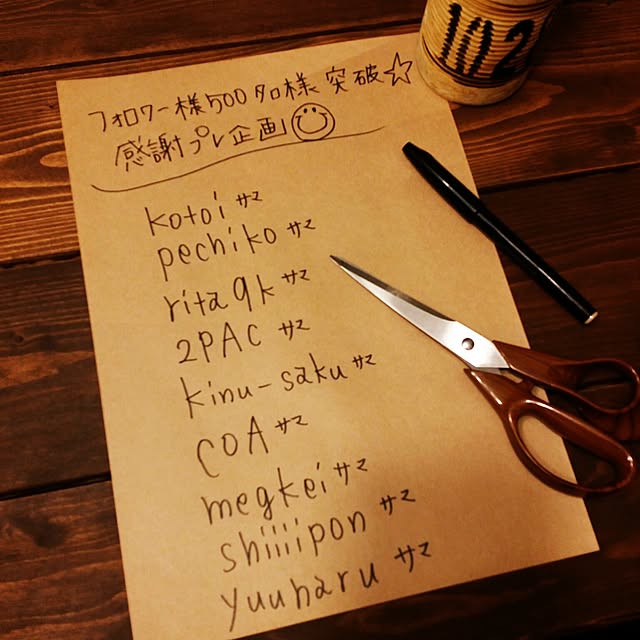 102
フォロワー様500名様突破☆
感謝プレ企画
kotoi サマ
pechiko サマ
rita9k サマ
2PAC サマ
kinu-saku サマ
COA サマ
megkei サマ
shiiiipon サマ
yuuharu サマ